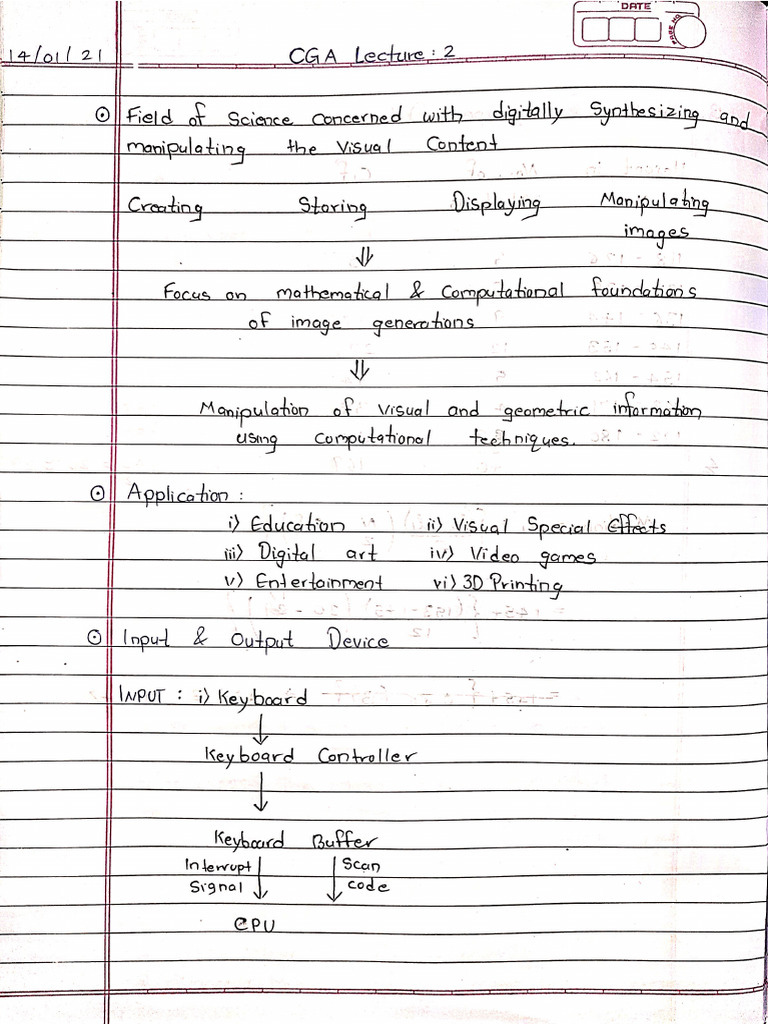 DATE
PAGE NO
14/01/21 CGA Lecture: 2
Field of Science concerned with digitally Synthesizing and
manipulating the Visual Content
Creating Storing Displaying Manipulating
images
⇓
Focus on mathematical & Computational foundations
of image generations
⇓
Manipulation of visual and geometric information
using computational techniques.
Application :
i) Education ii) Visual Special Effects
iii) Digital art iv) Video games
v) Entertainment vi) 3D Printing
Input & Output Device
INPUT : i) Keyboard
↓
Keyboard Controller
↓
Keyboard Buffer
Interrupt ↓ ↓ Scan
Signal code
CPU